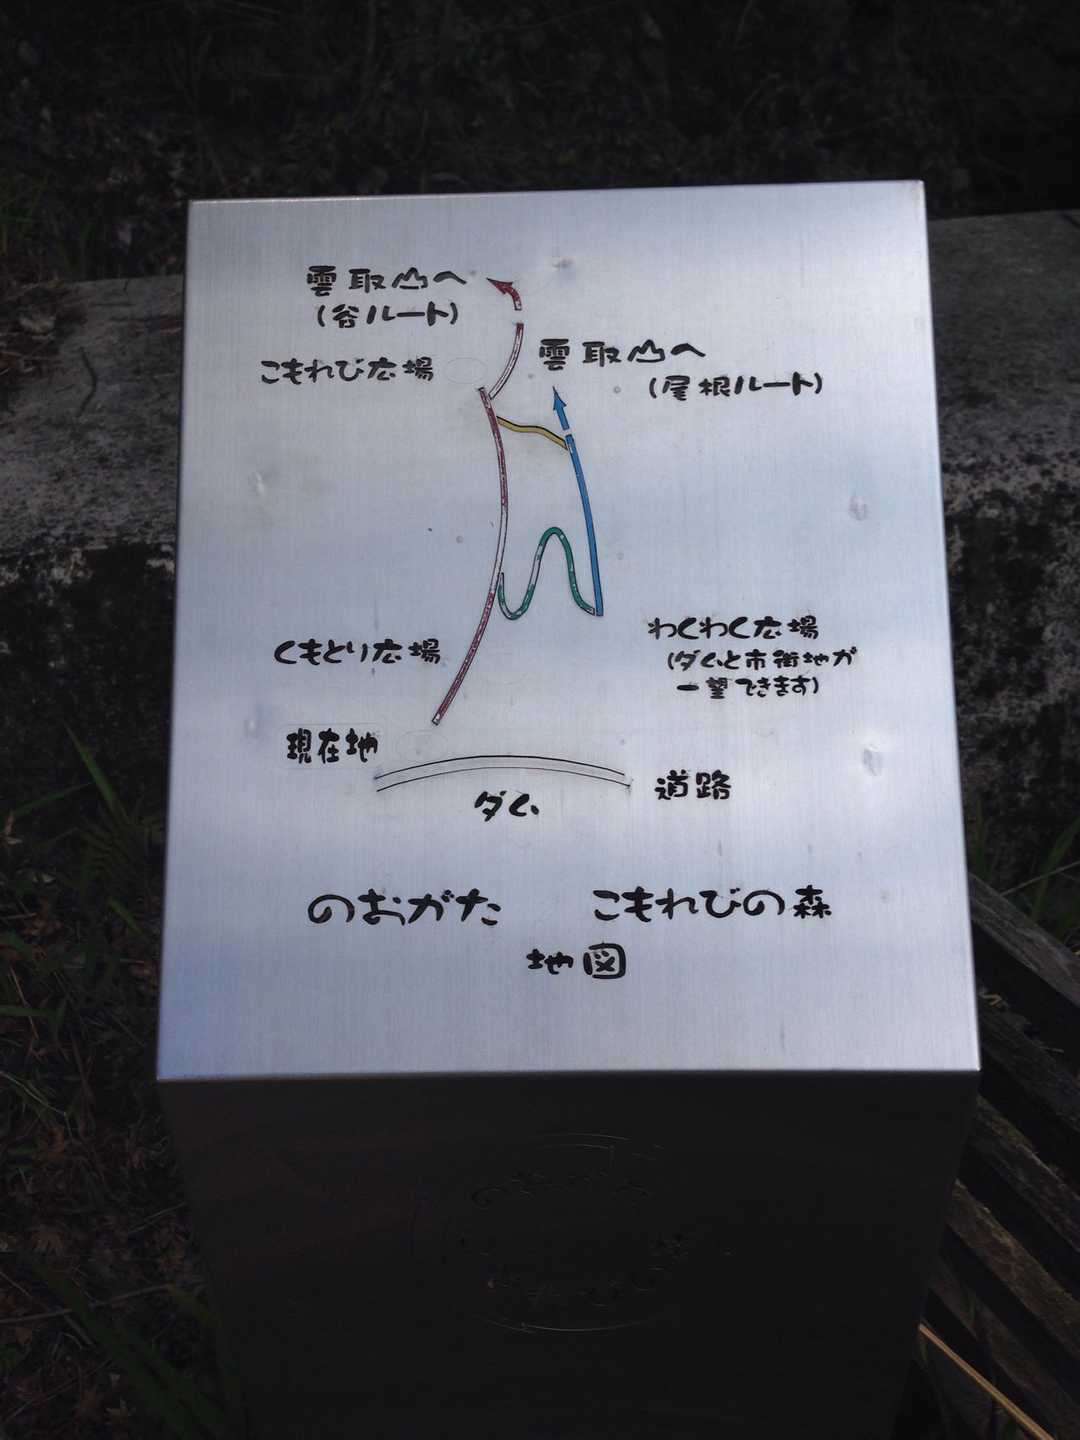 雲取山へ
(谷ルート)
雲取山へ
こもれび広場
(尾根ルート)
わくわく広場
くもとり広場
(ダムと市街地が
一望できます)
現在地
道路
ダム
のおがた こもれびの森
地図